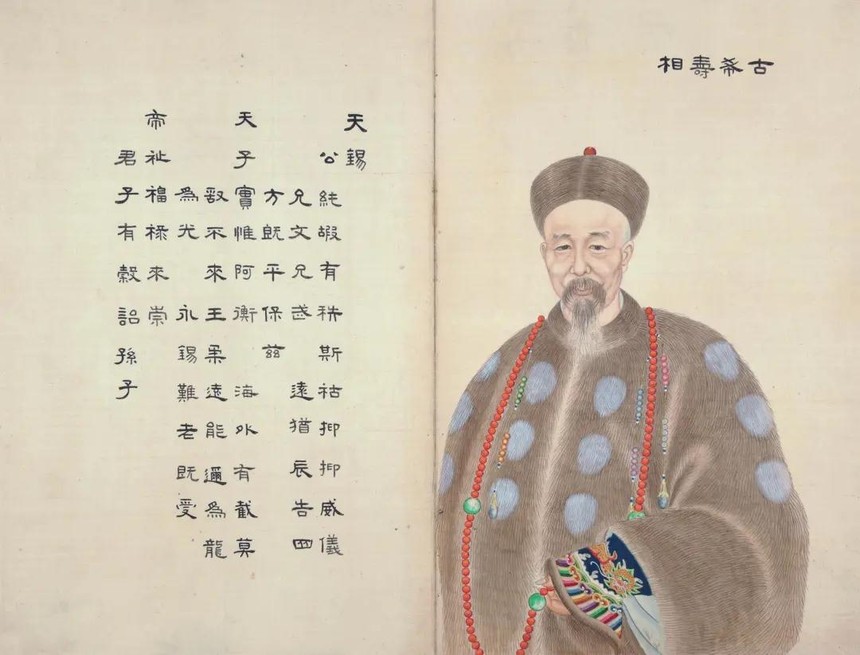 古希壽相
天錫
公純嘏有秩斯祜抑抑威儀
允文允武 遠猶辰告四
方既平保茲
天子實惟阿衡 海外有截莫
敢不來王柔遠能邇為龍
為光 永錫難老既受
帝祉福祿來崇
君子有穀詒孫子